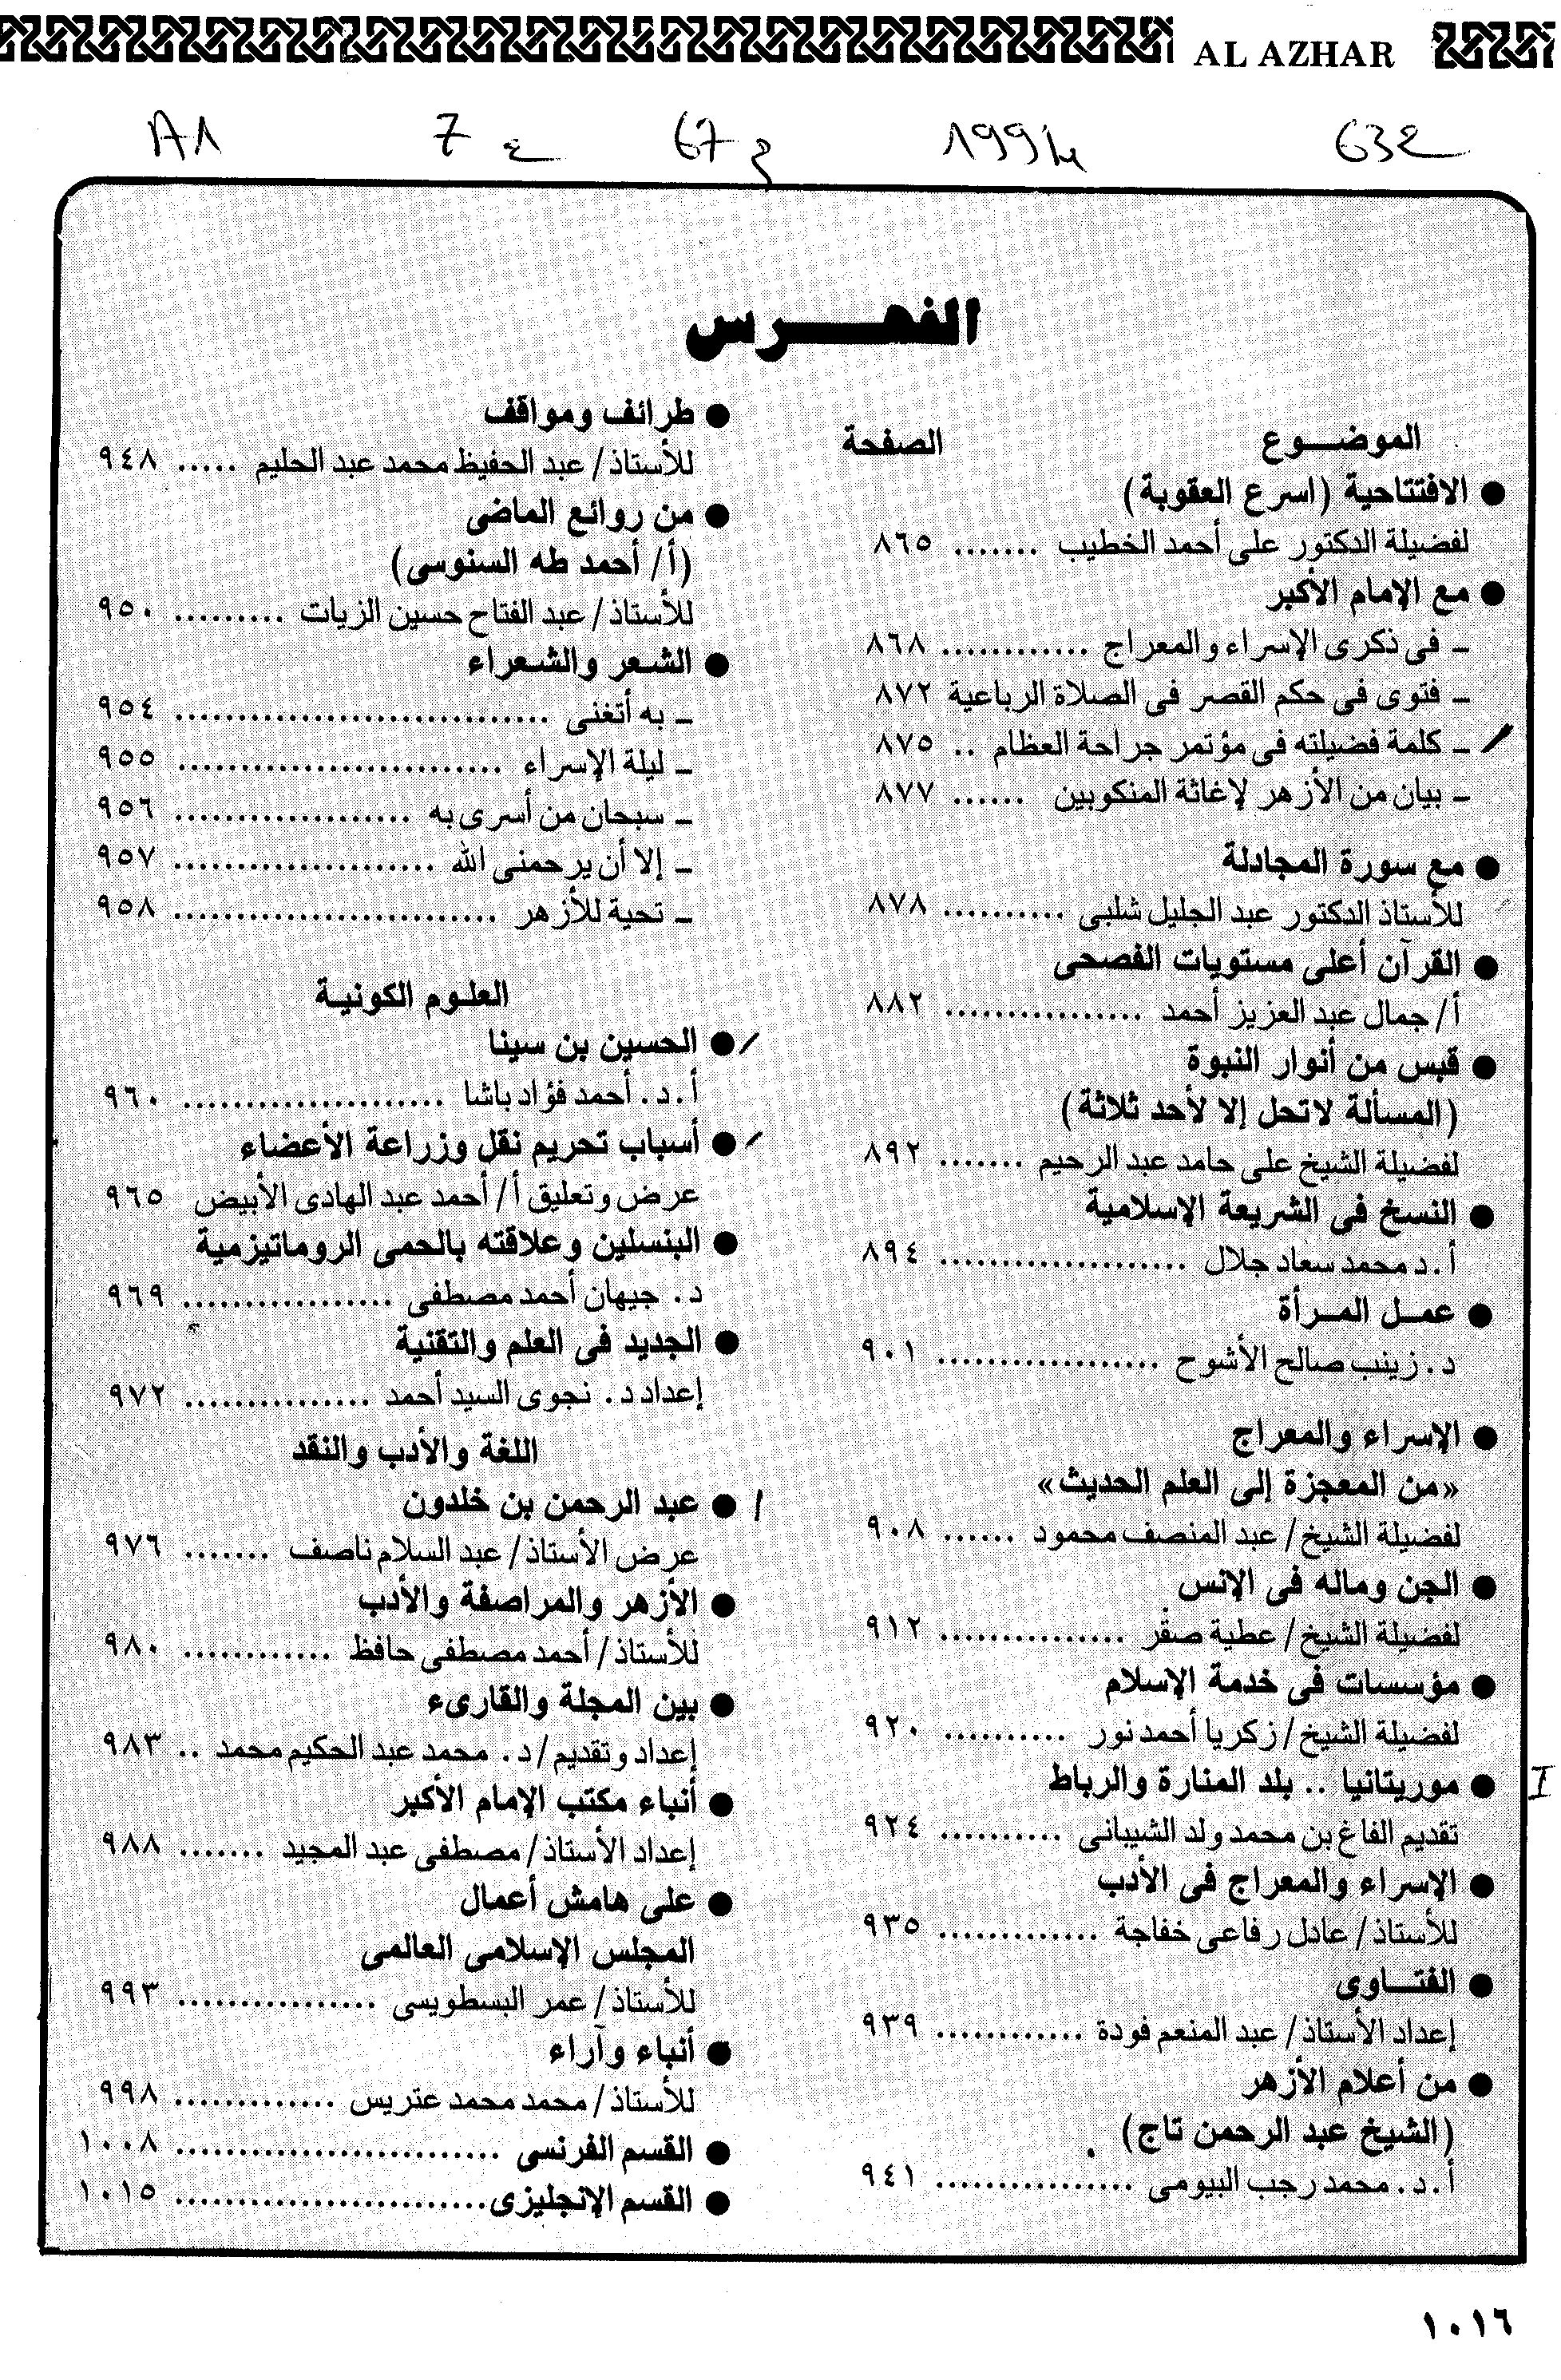 AL AZHAR
632
1994م
67ج
7ع
الفهـــرس
الموضـــوع
الصفحة
● الافتتاحية (اسرع العقوبة)
لفضيلة الدكتور على أحمد الخطيب ....... ٨٦٥
● مع الإمام الأكبر
ـ فى ذكرى الإسراء والمعراج ............ ٨٦٨
ـ فتوى فى حكم القصر فى الصلاة الرباعية ٨٧٢
ـ كلمة فضيلته فى مؤتمر جراحة العظام .. ٨٧٥
ـ بيان من الأزهر لإغاثة المنكوبين ...... ٨٧٧
● مع سورة المجادلة
للأستاذ الدكتور عبد الجليل شلبى .......... ٨٧٨
● القرآن أعلى مستويات الفصحى
أ/ جمال عبد العزيز أحمد ................ ٨٨٢
● قبس من أنوار النبوة
(المسألة لاتحل إلا لأحد ثلاثة)
لفضيلة الشيخ على حامد عبد الرحيم ....... ٨٩٢
● النسخ فى الشريعة الإسلامية
أ.د محمد سعاد جلال .................... ٨٩٤
● عمـل المـرأة
د. زينب صالح الأشوح .................. ٩٠١
● الإسراء والمعراج
«من المعجزة إلى العلم الحديث»
لفضيلة الشيخ/ عبد المنصف محمود ...... ٩٠٨
● الجن وماله فى الإنس
لفضيلة الشيخ/ عطية صقر ............... ٩١٢
● مؤسسات فى خدمة الإسلام
لفضيلة الشيخ/ زكريا أحمد نور .......... ٩٢٠
● موريتانيا .. بلد المنارة والرباط
تقديم الفاغ بن محمد ولد الشيبانى .......... ٩٢٤
● الإسراء والمعراج فى الأدب
للأستاذ/ عادل رفاعى خفاجة ............. ٩٣٥
● الفتـــاوى
إعداد الأستاذ/ عبد المنعم فودة ............ ٩٣٩
● من أعلام الأزهر
(الشيخ عبد الرحمن تاج)
أ.د. محمد رجب البيومى ................ ٩٤١
● طرائف ومواقف
للأستاذ/ عبد الحفيظ محمد عبد الحليم ..... ٩٤٨
● من روائع الماضى
(أ/ أحمد طه السنوسى)
للأستاذ/ عبد الفتاح حسين الزيات ......... ٩٥٠
● الشـعر والشـعراء
ـ به أتغنى .............................. ٩٥٤
ـ ليلة الإسراء .......................... ٩٥٥
ـ سبحان من أسرى به ................... ٩٥٦
ـ إلا أن يرحمنى الله ..................... ٩٥٧
ـ تحية للأزهر .......................... ٩٥٨
العلـوم الكونيـة
● الحسين بن سينا
أ.د. أحمد فؤاد باشا ..................... ٩٦٠
● أسباب تحريم نقل وزراعة الأعضاء
عرض وتعليق أ/ أحمد عبد الهادى الأبيض ٩٦٥
● البنسلين وعلاقته بالحمى الروماتيزمية
د. جيهان أحمد مصطفى ................. ٩٦٩
● الجديد فى العلم والتقنية
إعداد د. نجوى السيد أحمد ............... ٩٧٢
اللغة والأدب والنقد
● عبد الرحمن بن خلدون
عرض الأستاذ/ عبد السلام ناصف ....... ٩٧٦
● الأزهر والمراصفة والأدب
للأستاذ/ أحمد مصطفى حافظ ............ ٩٨٠
● بين المجلة والقارىء
إعداد وتقديم/ د. محمد عبد الحكيم محمد .. ٩٨٣
● أنباء مكتب الإمام الأكبر
إعداد الأستاذ/ مصطفى عبد المجيد ....... ٩٨٨
● على هامش أعمال
المجلس الإسلامى العالمى
للأستاذ/ عمر البسطويسى ................ ٩٩٣
● أنباء وآراء
للأستاذ/ محمد محمد عتريس ............. ٩٩٨
● القسم الفرنسى .......................... ١٠٠٨
● القسم الإنجليزى ......................... ١٠١٥
١٠١٦